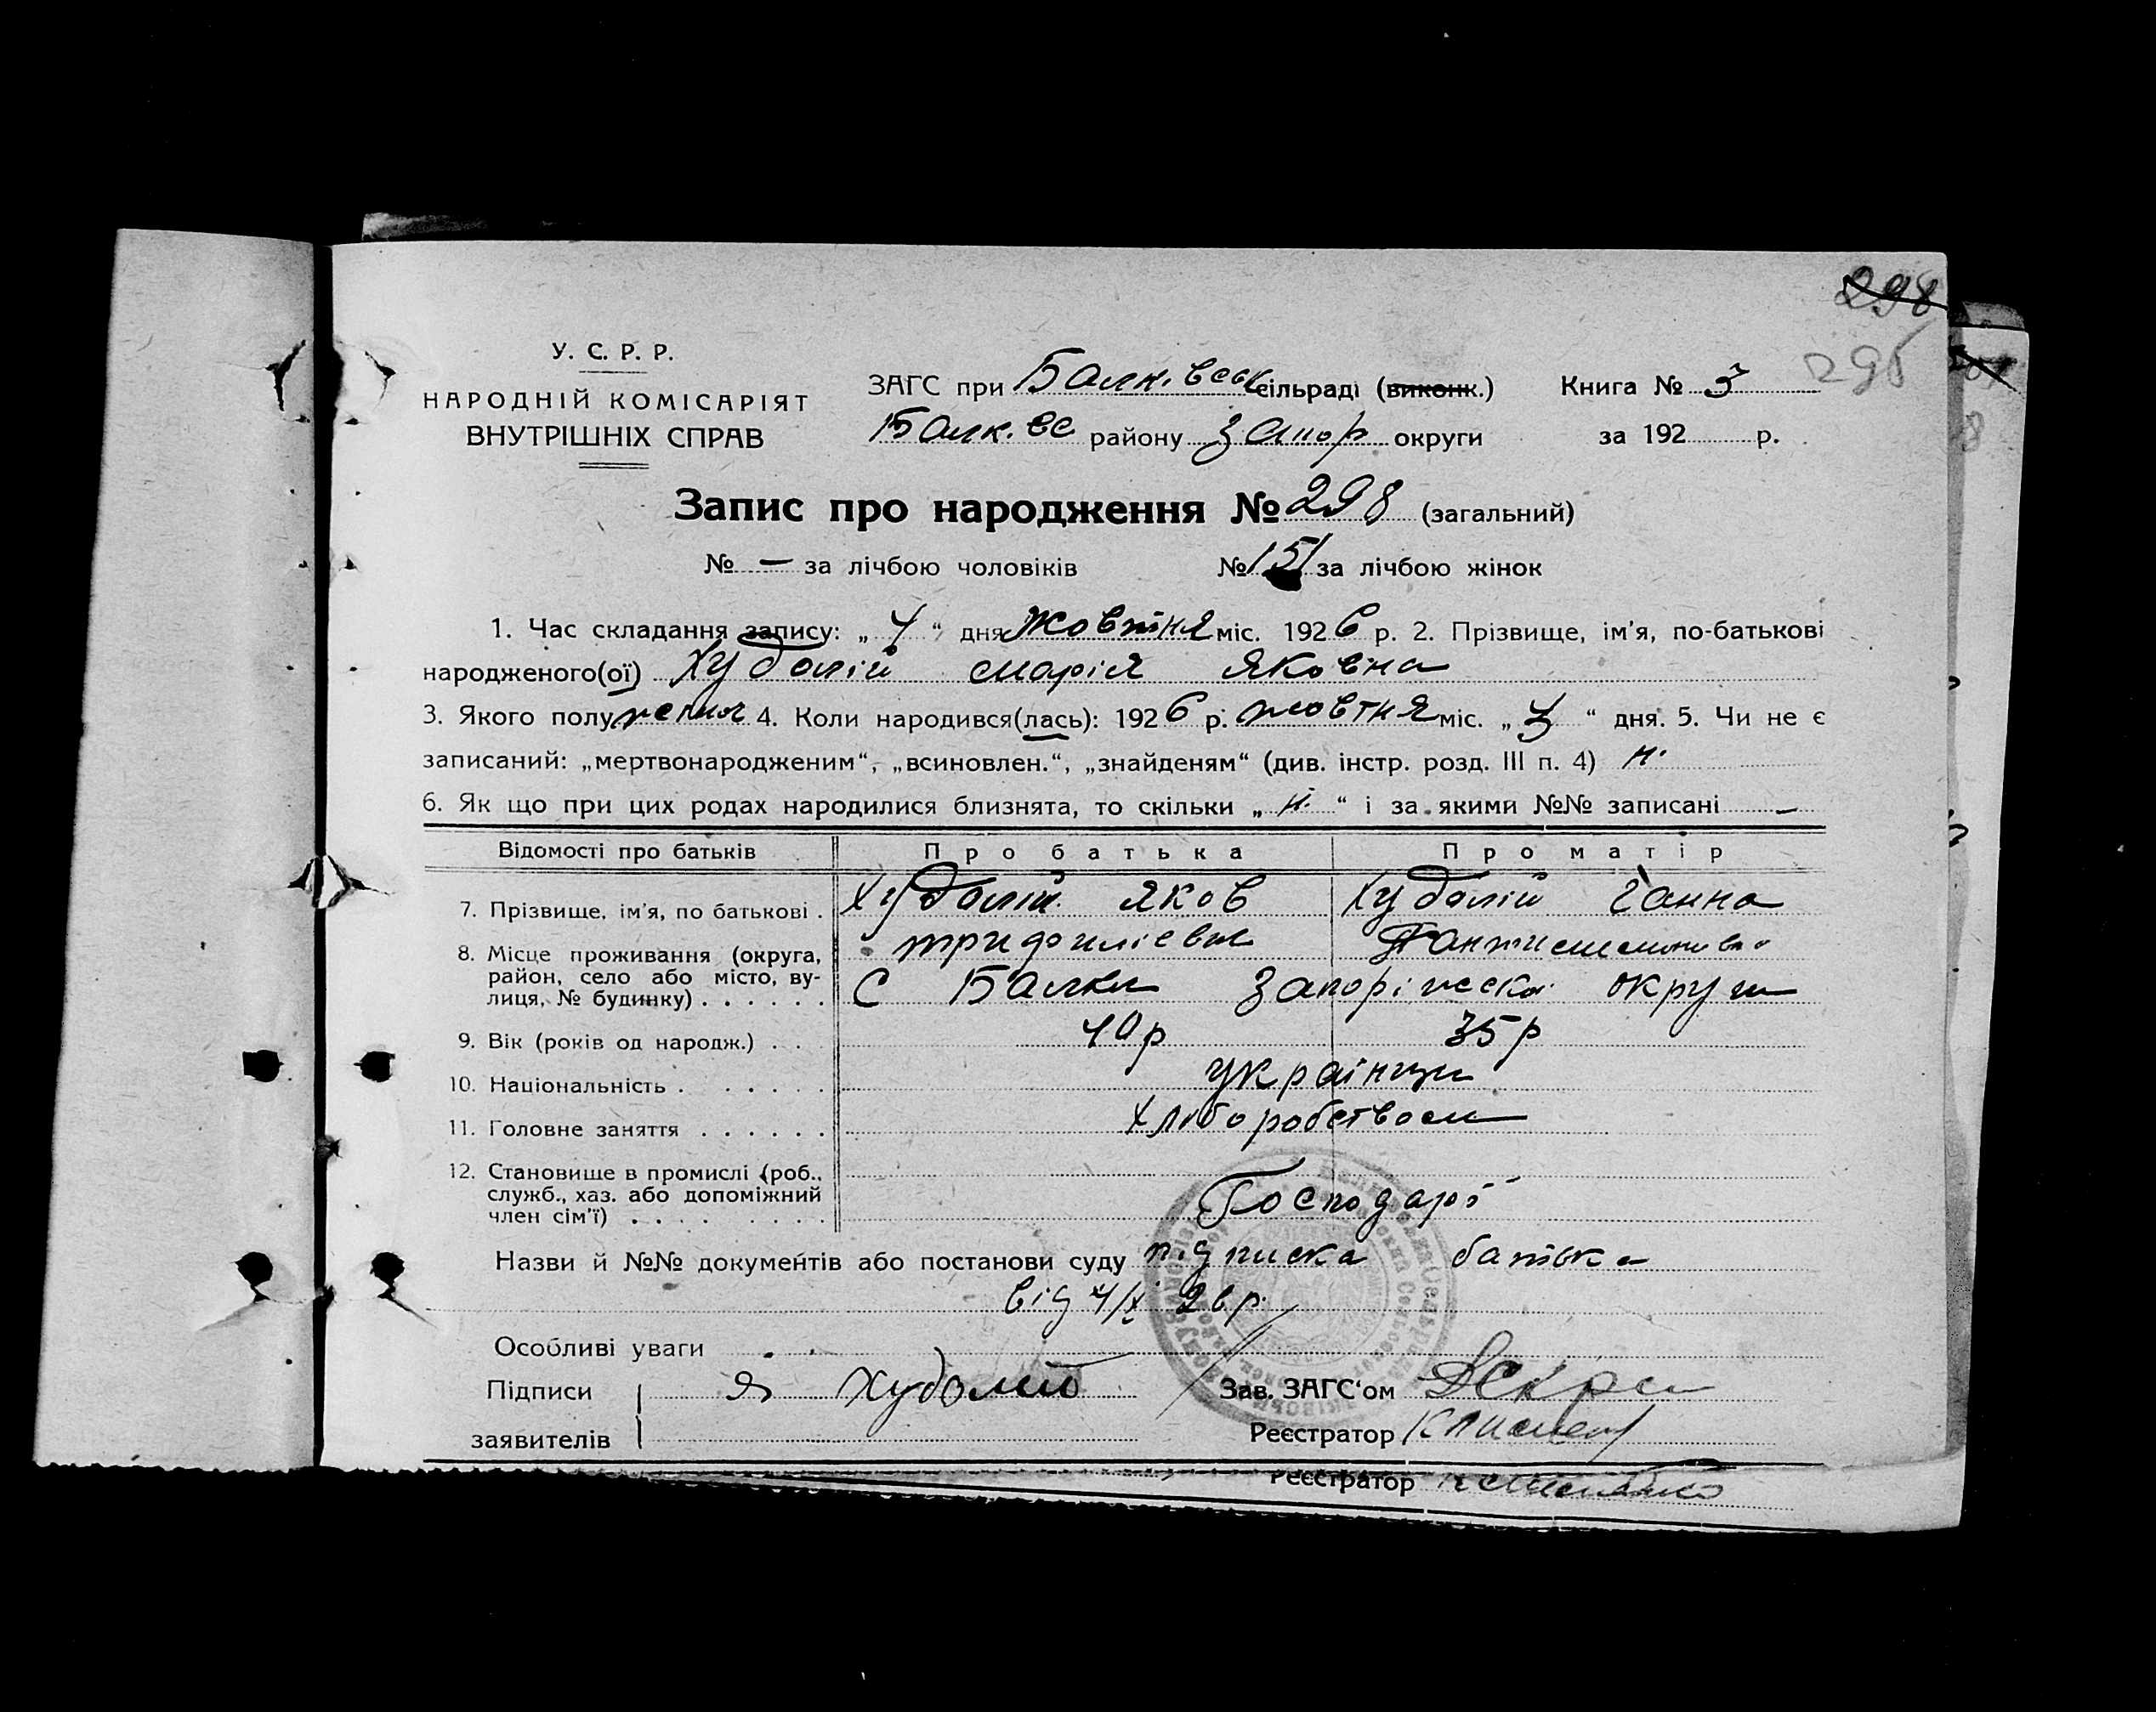 298
295
У. С. Р. Р.
НАРОДНІЙ КОМІСАРІЯТ
ВНУТРІШНІХ СПРАВ
ЗАГС при Балк.вськ сільраді (виконк.)
Балк. вс району Запор округи
Книга № 3
за 192 р.
Запис про народження № 298 (загальний)
№ — за лічбою чоловіків № 151 за лічбою жінок
1. Час складання запису: „ 4 “ дня жовтня міс. 1926 р. 2. Прізвище, ім'я, по-батькові
народженого(ої) Худолій Марія Яковна
3. Якого полу 4. Коли народився(лась): 1926 р. жовтня міс. „ 3 “ дня. 5. Чи не є
записаний: „мертвонародженим“, „всиновлен.“, „знайденям“ (див. інстр. розд. III п. 4) н.
6. Як що при цих родах народилися близнята, то скільки „ н. “ і за якими №№ записані —
Відомості про батьків Про батька Про матір
7. Прізвище, ім'я, по батькові . Худолій Яков Худолій Ганна
8. Місце проживання (округа,
район, село або місто, ву-
лиця, № будинку) . . . . . . С Балки Запоріжска округи
9. Вік (років од народж.) . . 40р 35р
10. Національність . . . . . . українци
11. Головне заняття . . . . . . Хліборобством
12. Становище в промислі (роб.,
служб., хаз. або допоміжний
член сім'ї) . . . . . . . . Господарі
Назви й №№ документів або постанови суду підписка батька
від 4/X 26р.
Особливі уваги
Підписи Я Худолий Зав. ЗАГС'ом
заявителів Реєстратор
Реєстратор